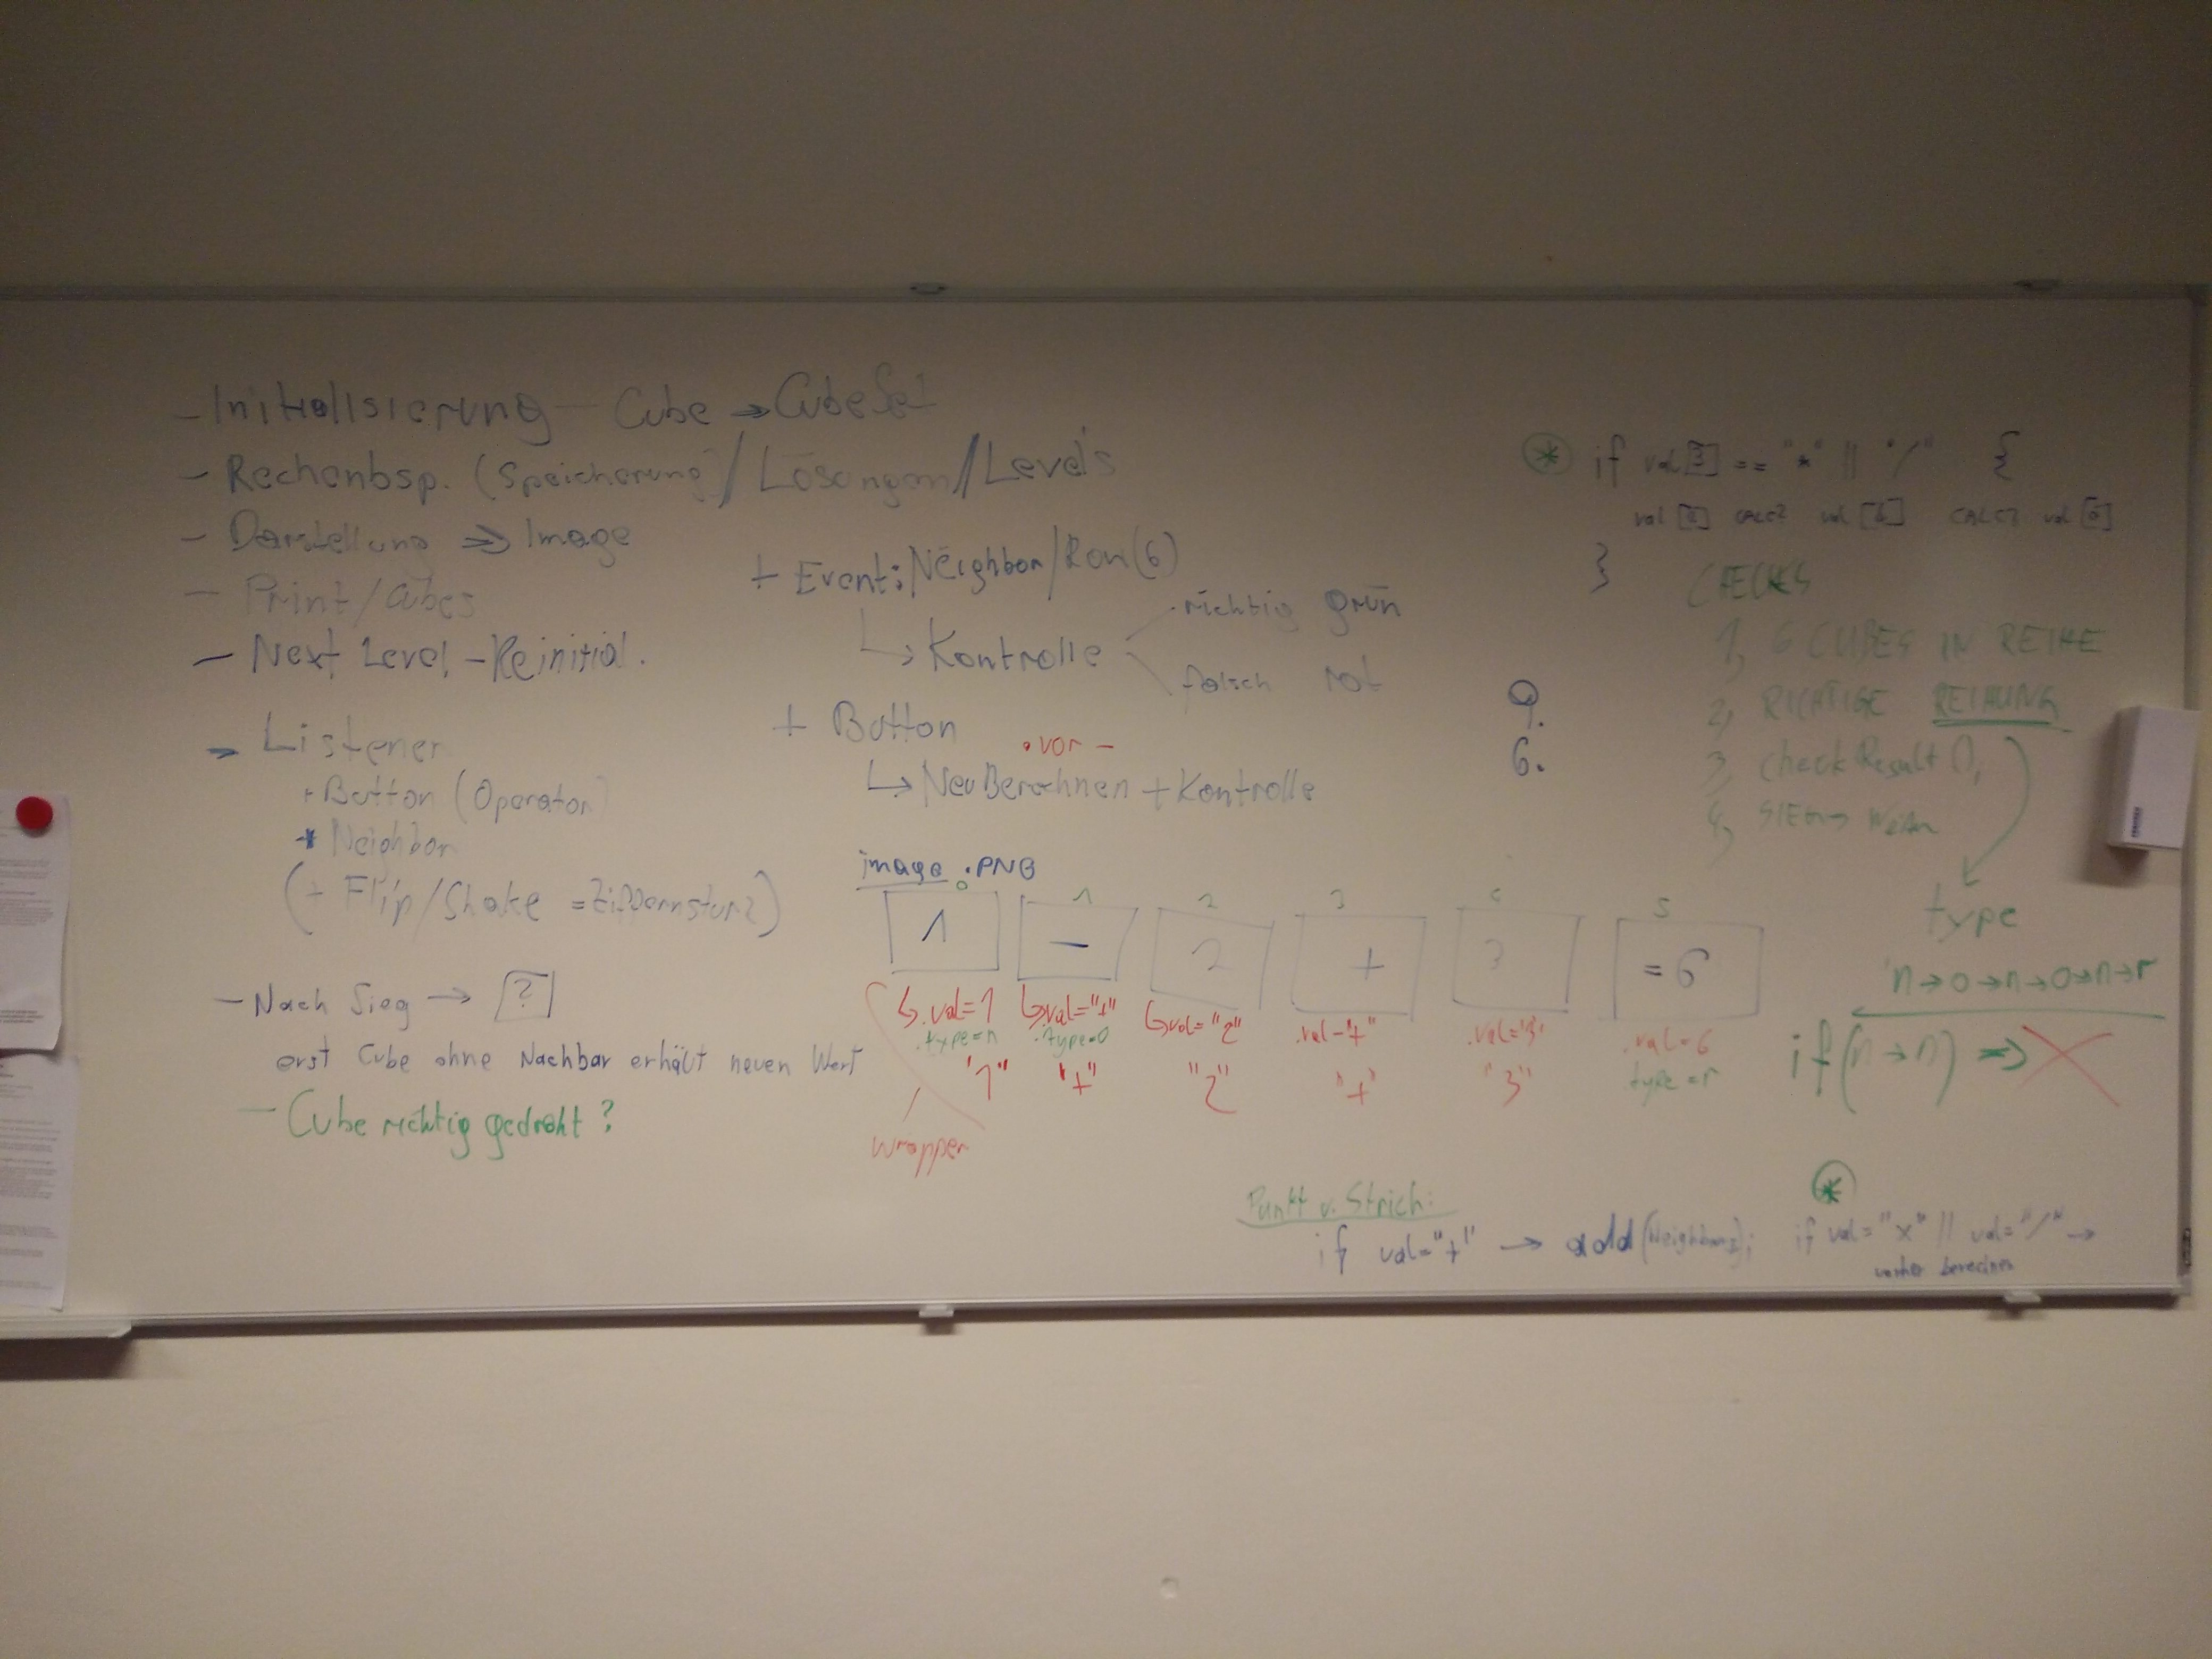 - Initialisierung - Cube → CubeSet
- Rechenbsp. (Speicherung) / Lösungen // Levels
- Darstellung ⇒ Image
- Print/Cubes
- Next Level - Reinitial.
→ Listener
+ Button (Operator)
* Neighbor
(+ Flip/Shake = Ziffernsturz)
- Nach Sieg → ?
erst Cube ohne Nachbar erhält neuen Wert
- Cube richtig gedreht?
+ Event: Neighbor/Row(6)
↳ Kontrolle
richtig grün
falsch rot
+ Button
• vor -
↳ Neu Berechnen + Kontrolle
9.
6.
image .PNG
0 1 2 3 4 5
1 - 2 + 3 = 6
↳ .val=1 ↳ .val="+" ↳ val="2" .val="+" .val="3" .val=6
.type=n .type=o type=r
"1" "+" "2" "+" "3"
wrapper
* if val[3] == "*" || "/" {
}
CHECKS
1, 6 CUBES IN REIHE
2, RICHTIGE REIHUNG
3, checkResult(),
4,
type
n→o→n→o→n→r
if(n→n) ⇒ X
Punkt v. Strich:
if val="+" → add(Neighbors);
*
if val="x" || val="/" →
vorher berechnen